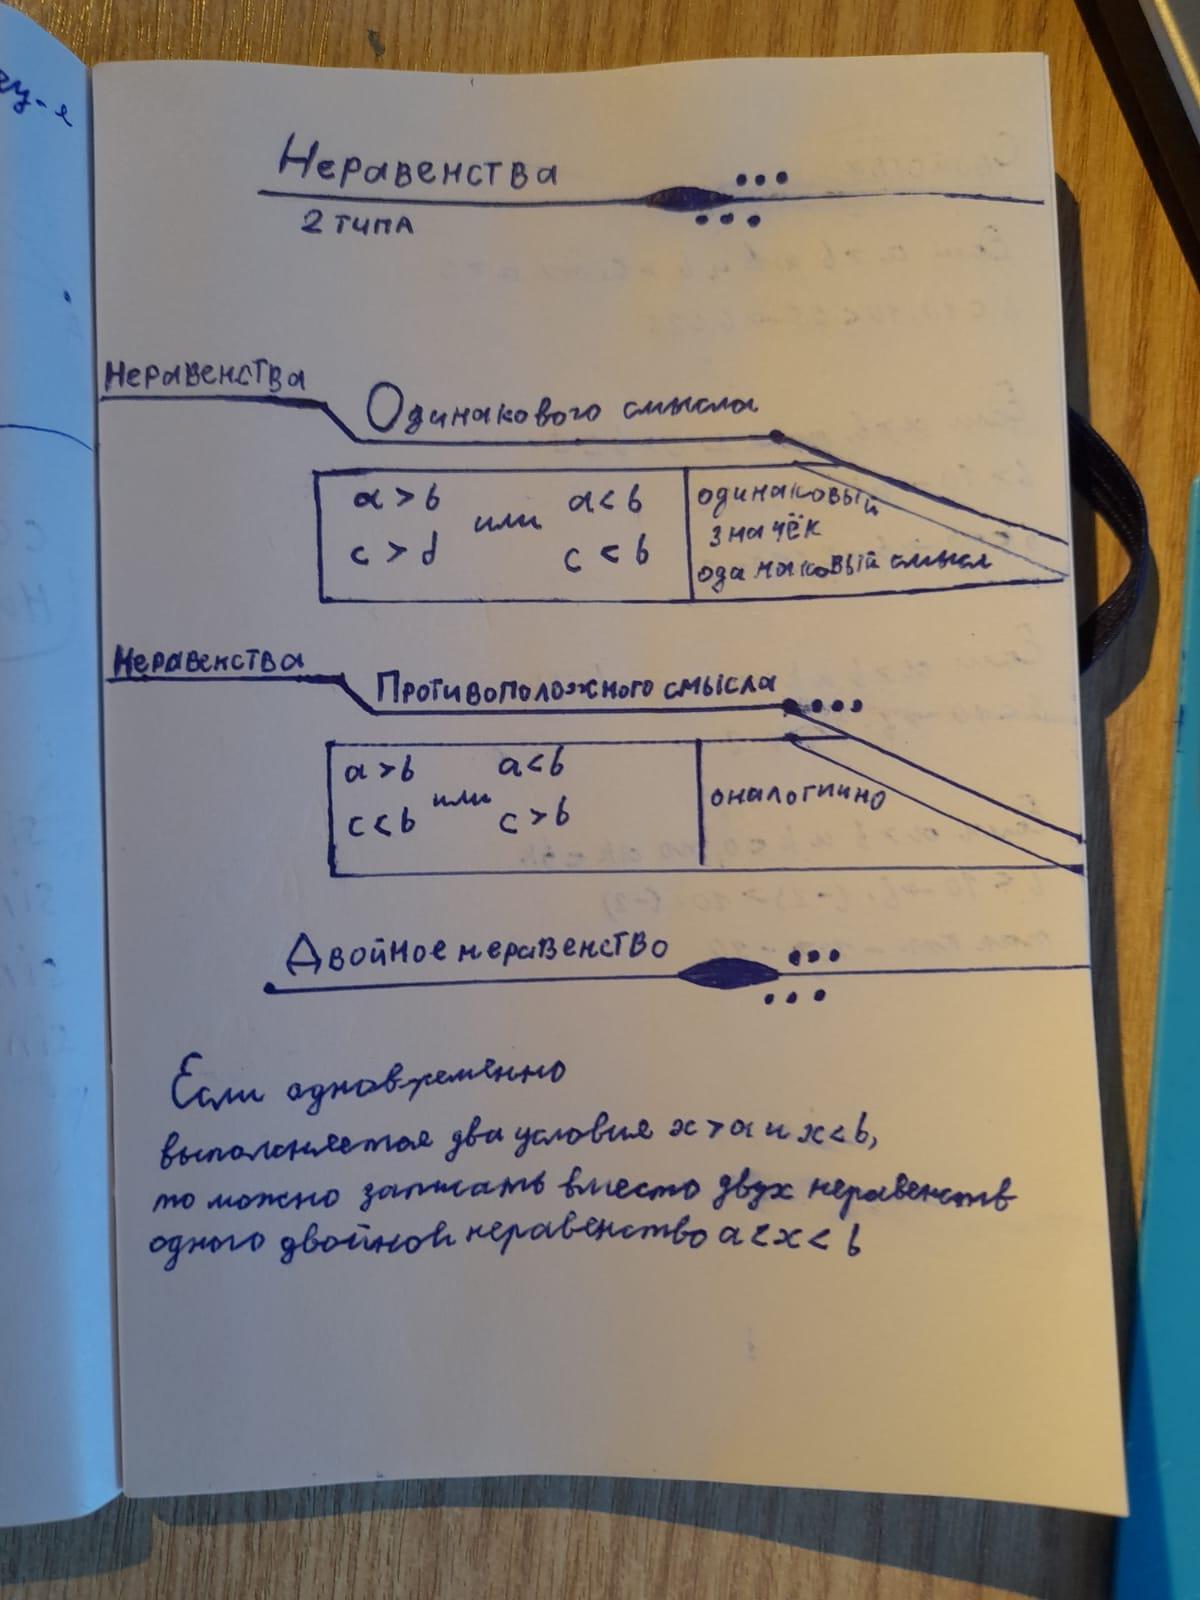 Неравенства
2 типа
Неравенства
Одинакового смысла
a > b или a < b
c > d c < b
одинаковый
значёк
оданаковый смысл
Неравенства
Противоположного смысла
a > b или a < b
c < b c > b
оналогично
Двойное неравенство
Если одновременно
выполняется два условия x > a и x < b,
то можно записать вместо двух неравенств
одного двойной неравенство a < x < b